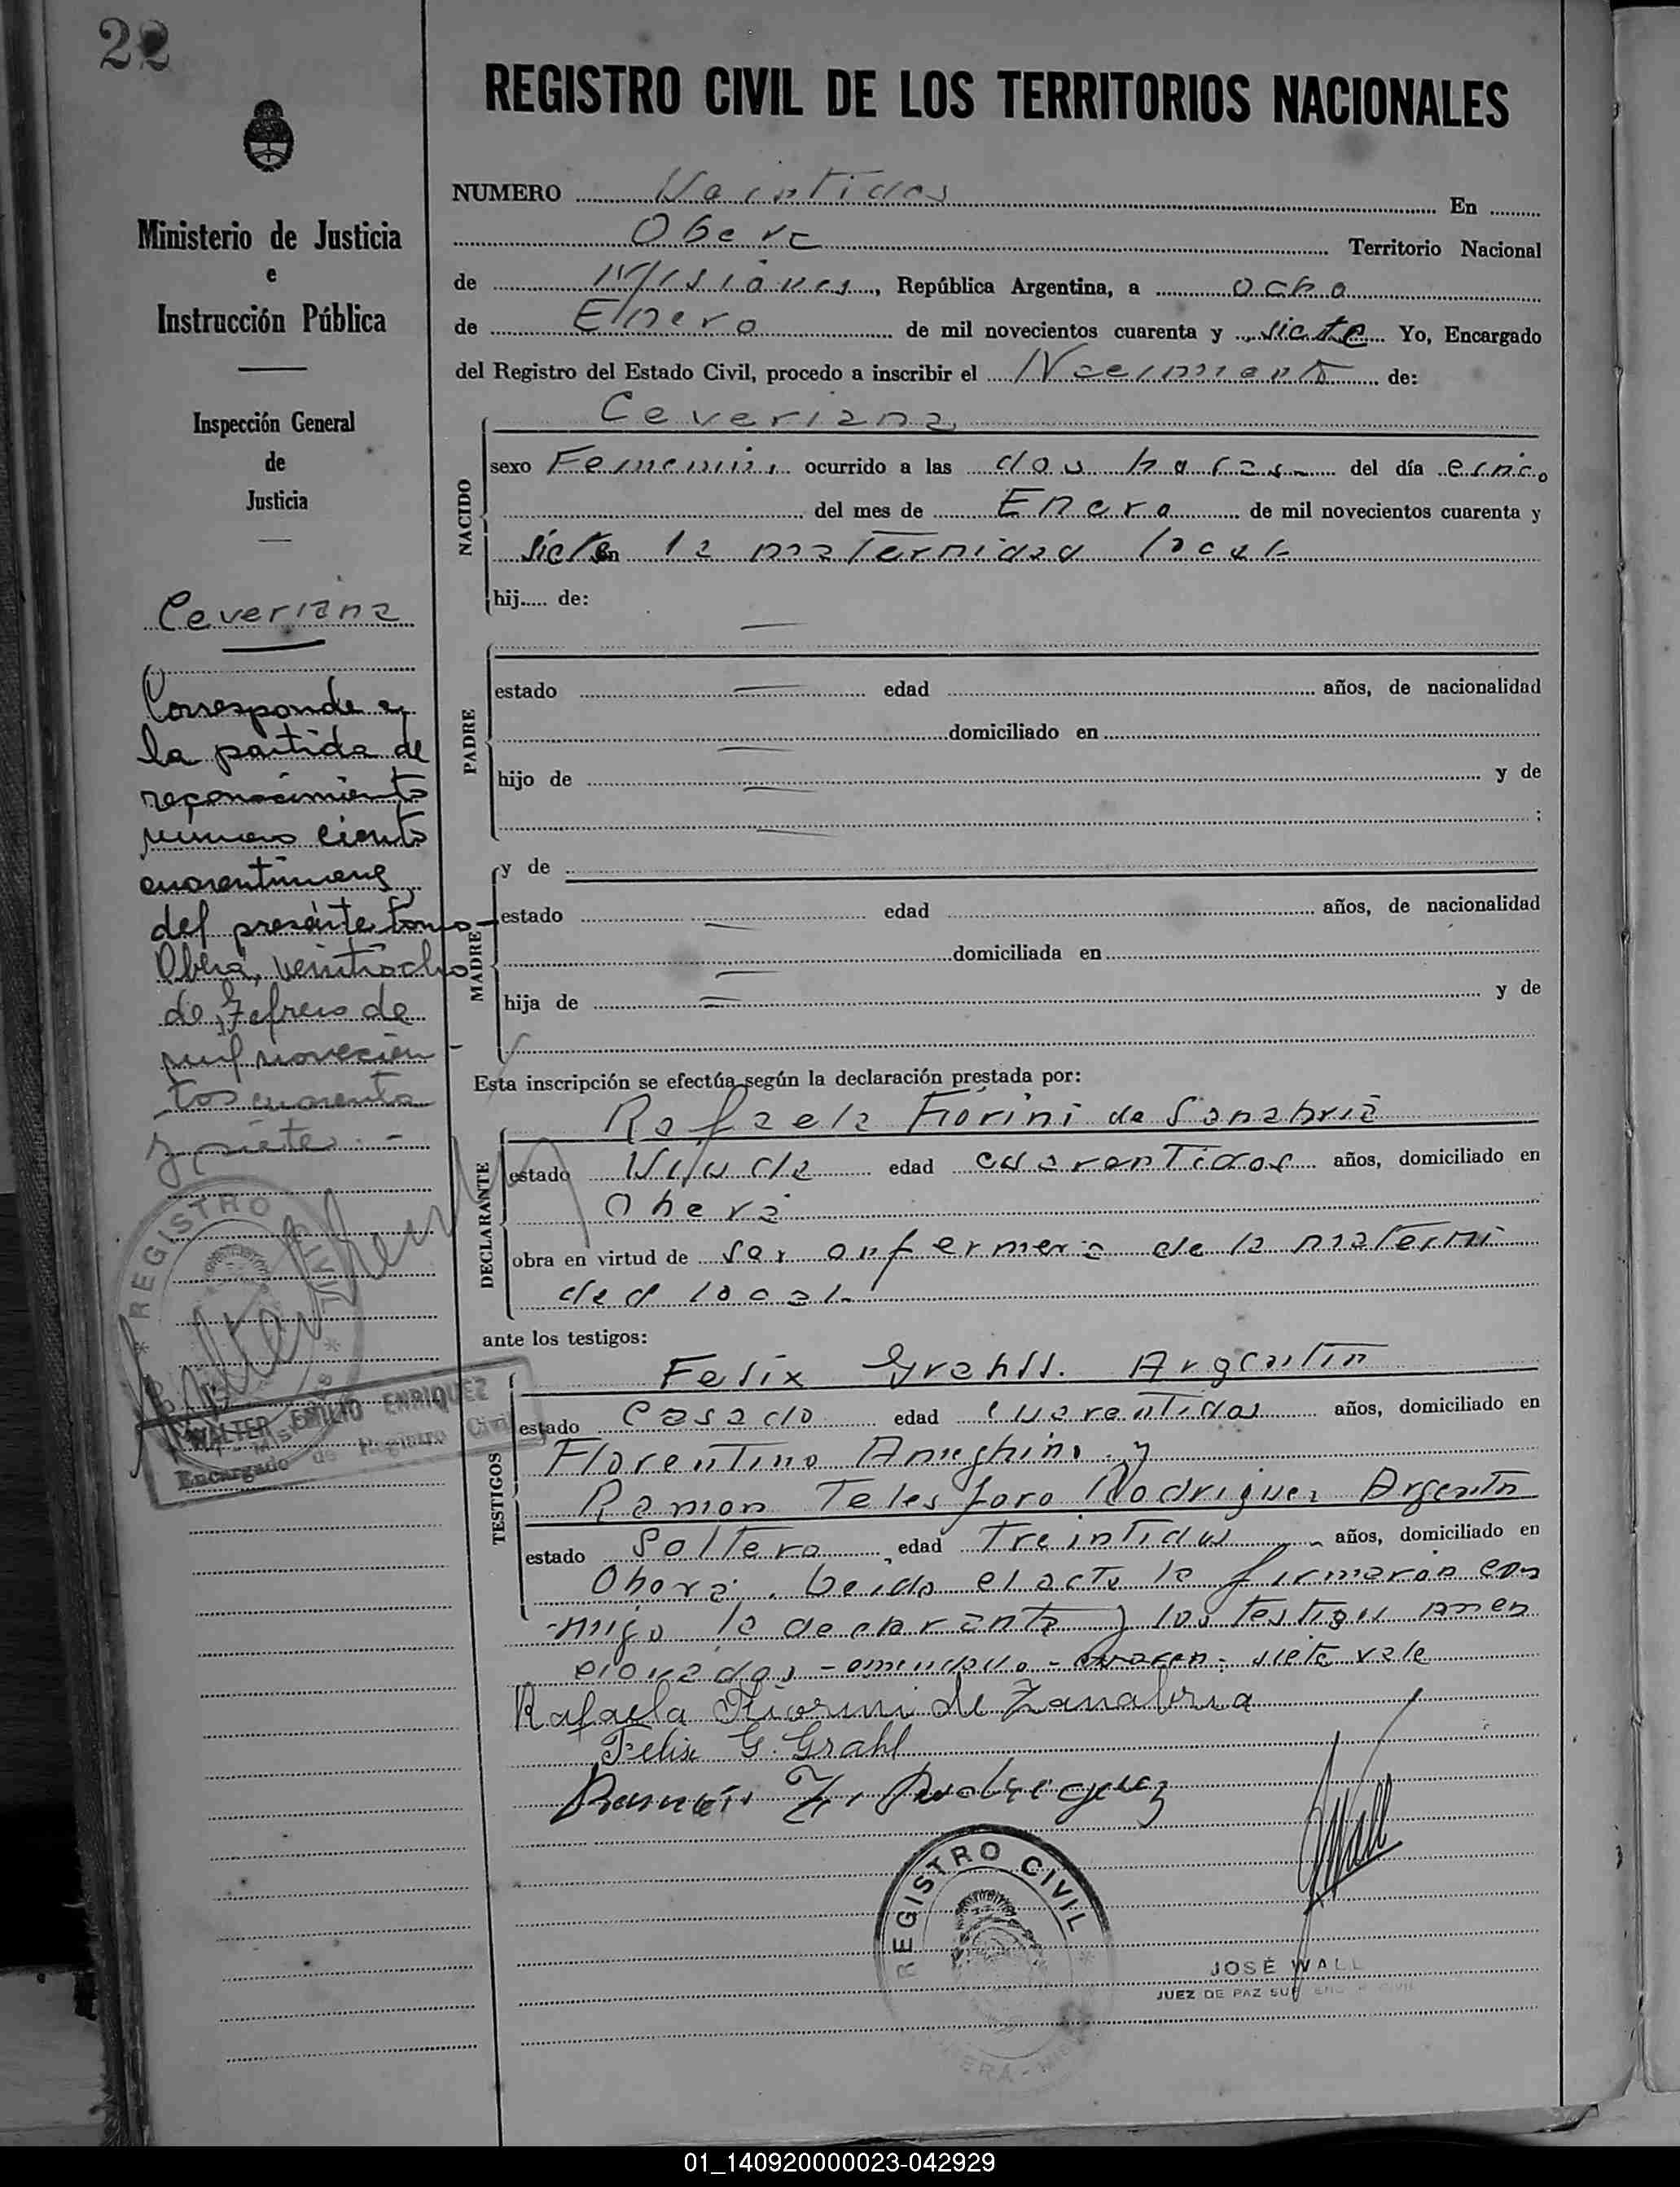 22
REGISTRO CIVIL DE LOS TERRITORIOS NACIONALES
Ministerio de Justicia
e
Instrucción Pública
Inspección General
de
Justicia
Ceveriana
Corresponde a
la partida de
reconocimiento
numero ciento
cuarentinueve
del presente tomo-
Oberá, veintiocho
de Febrero de
mil novecien-
tos cuarenta
y siete.-
REGISTRO CIVIL
WALTER EMILIO ENRIQUEZ
Encargado de Registro Civil
NUMERO Veintidos En
Obera Territorio Nacional
de Misiones, República Argentina, a ocho
de Enero de mil novecientos cuarenta y siete Yo, Encargado
del Registro del Estado Civil, procedo a inscribir el Nacimiento de:
Ceveriana
NACIDO
sexo Femenino ocurrido a las dos horas del día cinco
del mes de Enero de mil novecientos cuarenta y
siete en la maternidad local
hij de:
PADRE
estado edad años, de nacionalidad
domiciliado en
hijo de y de
;
MADRE
y de
estado edad años, de nacionalidad
domiciliada en
hija de y de
Esta inscripción se efectúa según la declaración prestada por:
DECLARANTE
Rafaela Fiorini de Sanabria
estado Viuda edad cuarentidos años, domiciliado en
Oberá
obra en virtud de ser enfermera de la materni
dad local.
ante los testigos:
TESTIGOS
Felix Grahll. Argentin
estado Casado edad cuarentidos años, domiciliado en
Florentino Ameghino y
Ramon Telesforo Rodriguez Argentn
estado Soltero edad Treintidos años, domiciliado en
Oberá. Leido el acta la firmaron con
migo la declarante y los testigos men
cionados - enmendado - siete vale
Rafaela Fiorini de Zanabria
Felix G. Grahl
Ramón T. Rodriguez
REGISTRO CIVIL
Wall
JOSÉ WALL
JUEZ DE PAZ SUP
01_140920000023-042929